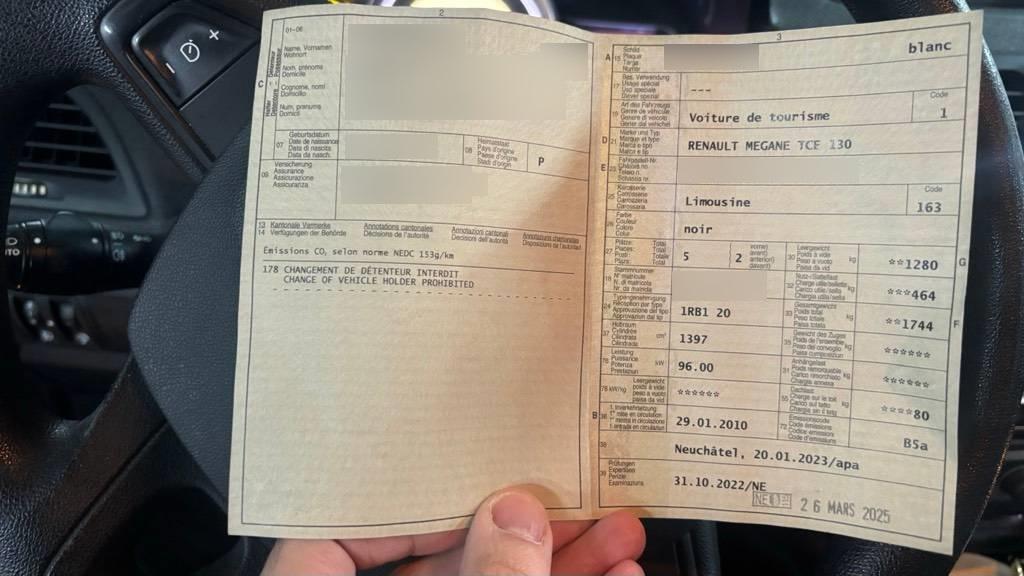 2
01-06
Name, Vornamen
Wohnort
Nom, prénoms
Domicile
Cognome, nomi
Domicilio
Num, prenums
Domicil
C
07
Geburtsdatum
Date de naissance
Data di nascita
Data da nasch.
08
Heimatstaat
Pays d'origine
Paese d'origine
Stadi d'origin
P
09
Versicherung
Assurance
Assicurazione
Assicuranza
13 Kantonale Vermerke
14 Verfügungen der Behörde
Annotations cantonales
Décisions de l'autorité
Annotazioni cantonali
Decisioni dell'autorità
Annotaziuns chantunalas
Disposiziuns da l'autoritad
Émissions CO₂ selon norme NEDC 153g/km
178 CHANGEMENT DE DÉTENTEUR INTERDIT
CHANGE OF VEHICLE HOLDER PROHIBITED
3
A 15
Schild
Plaque
Targa
Numer
blanc
17
Bes. Verwendung
Usage spécial
Uso speciale
Diever spezial
---
19
Art des Fahrzeugs
Genre de véhicule
Genere di veicolo
Gener dal vehichel
Voiture de tourisme
Code
1
D 21
Marke und Typ
Marque et type
Marca e tipo
Marca e tip
RENAULT MEGANE TCE 130
E 23
Fahrgestell-Nr.
Châssis no.
Telaio n.
Schassis nr.
25
Karosserie
Carrosserie
Carrozzeria
Carossaria
Limousine
Code
163
26
Farbe
Couleur
Colore
Colur
noir
27
Plätze: Total
Places: Total
Posti: Totale
Plazs: Total
5
2
vorne)
avant)
anteriori)
davant)
30
Leergewicht
Poids à vide
Peso a vuoto
Paisa da vid
kg
**1280
G
18
Stammnummer
N° matricule
N. di matricola
Nr. da matricla
32
Nutz-/Sattellast
Charge utile/sellette
Carico utile/sella
Chargia utila/sella
kg
***464
24
Typengenehmigung
Réception par type
Approvazione del tipo
Approvaziun dal tip
1RB1 20
33
Gesamtgewicht
Poids total
Peso totale
Paisa totala
kg
**1744
F
37
Hubraum
Cylindrée
Cilindrata
Cilindrada
cm³
1397
35
Gewicht des Zuges
Poids de l'ensemble
Peso del convoglio
Paisa cumposiziun
kg
******
76
Leistung
Puissance
Potenza
Prestaziun
kW
96.00
31
Anhängelast
Poids remorquable
Carico rimorchiato
Chargia annexa
kg
******
78 kW/kg
Leergewicht
poids à vide
peso a vuoto
paisa da vid
******
55
Dachlast
Charge sur le toit
Carico sul tetto
Chargia sin il tetg
kg
****80
B 36
1. Inverkehrsetzung
1re mise en circulation
1a messa in circolazione
1. entrada en circulaziun
29.01.2010
72
Emissionscode
Code émissions
Codice emissioni
Code d'emissiuns
B5a
38
Neuchâtel, 20.01.2023/apa
39
Prüfungen
Expertises
Perizie
Examinaziuns
31.10.2022/NE
NE
26 MARS 2025